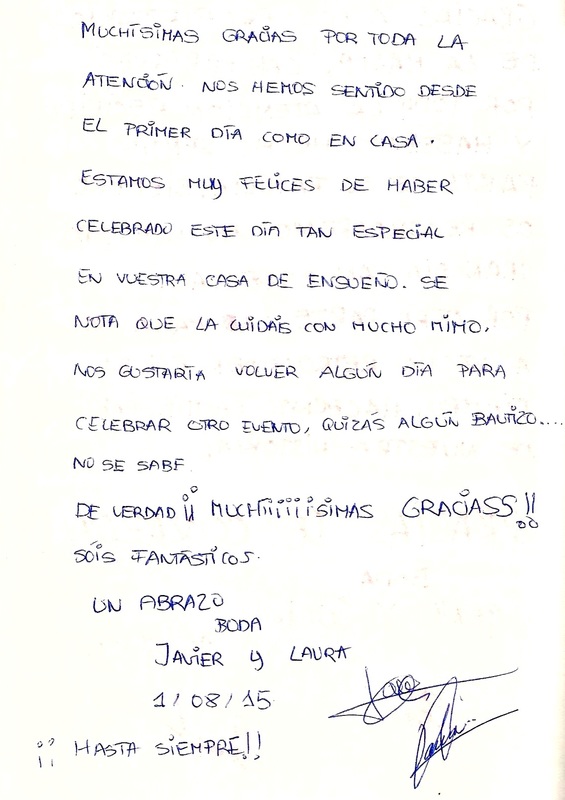 MUCHÍSIMAS GRACIAS POR TODA LA
ATENCIÓN. NOS HEMOS SENTIDO DESDE
EL PRIMER DÍA COMO EN CASA.
ESTAMOS MUY FELICES DE HABER
CELEBRADO ESTE DÍA TAN ESPECIAL
EN VUESTRA CASA DE ENSUEÑO. SE
NOTA QUE LA CUIDÁIS CON MUCHO MIMO.
NOS GUSTARÍA VOLVER ALGÚN DÍA PARA
CELEBRAR OTRO EVENTO, QUIZÁS ALGÚN BAUTIZO....
NO SE SABE.
DE VERDAD ¡¡ MUCHÍIIIIISIMAS GRACIASS!!
SÓIS FANTÁSTICOS.
UN ABRAZO
BODA
JAVIER Y LAURA
1/08/15
¡¡ HASTA SIEMPRE!!